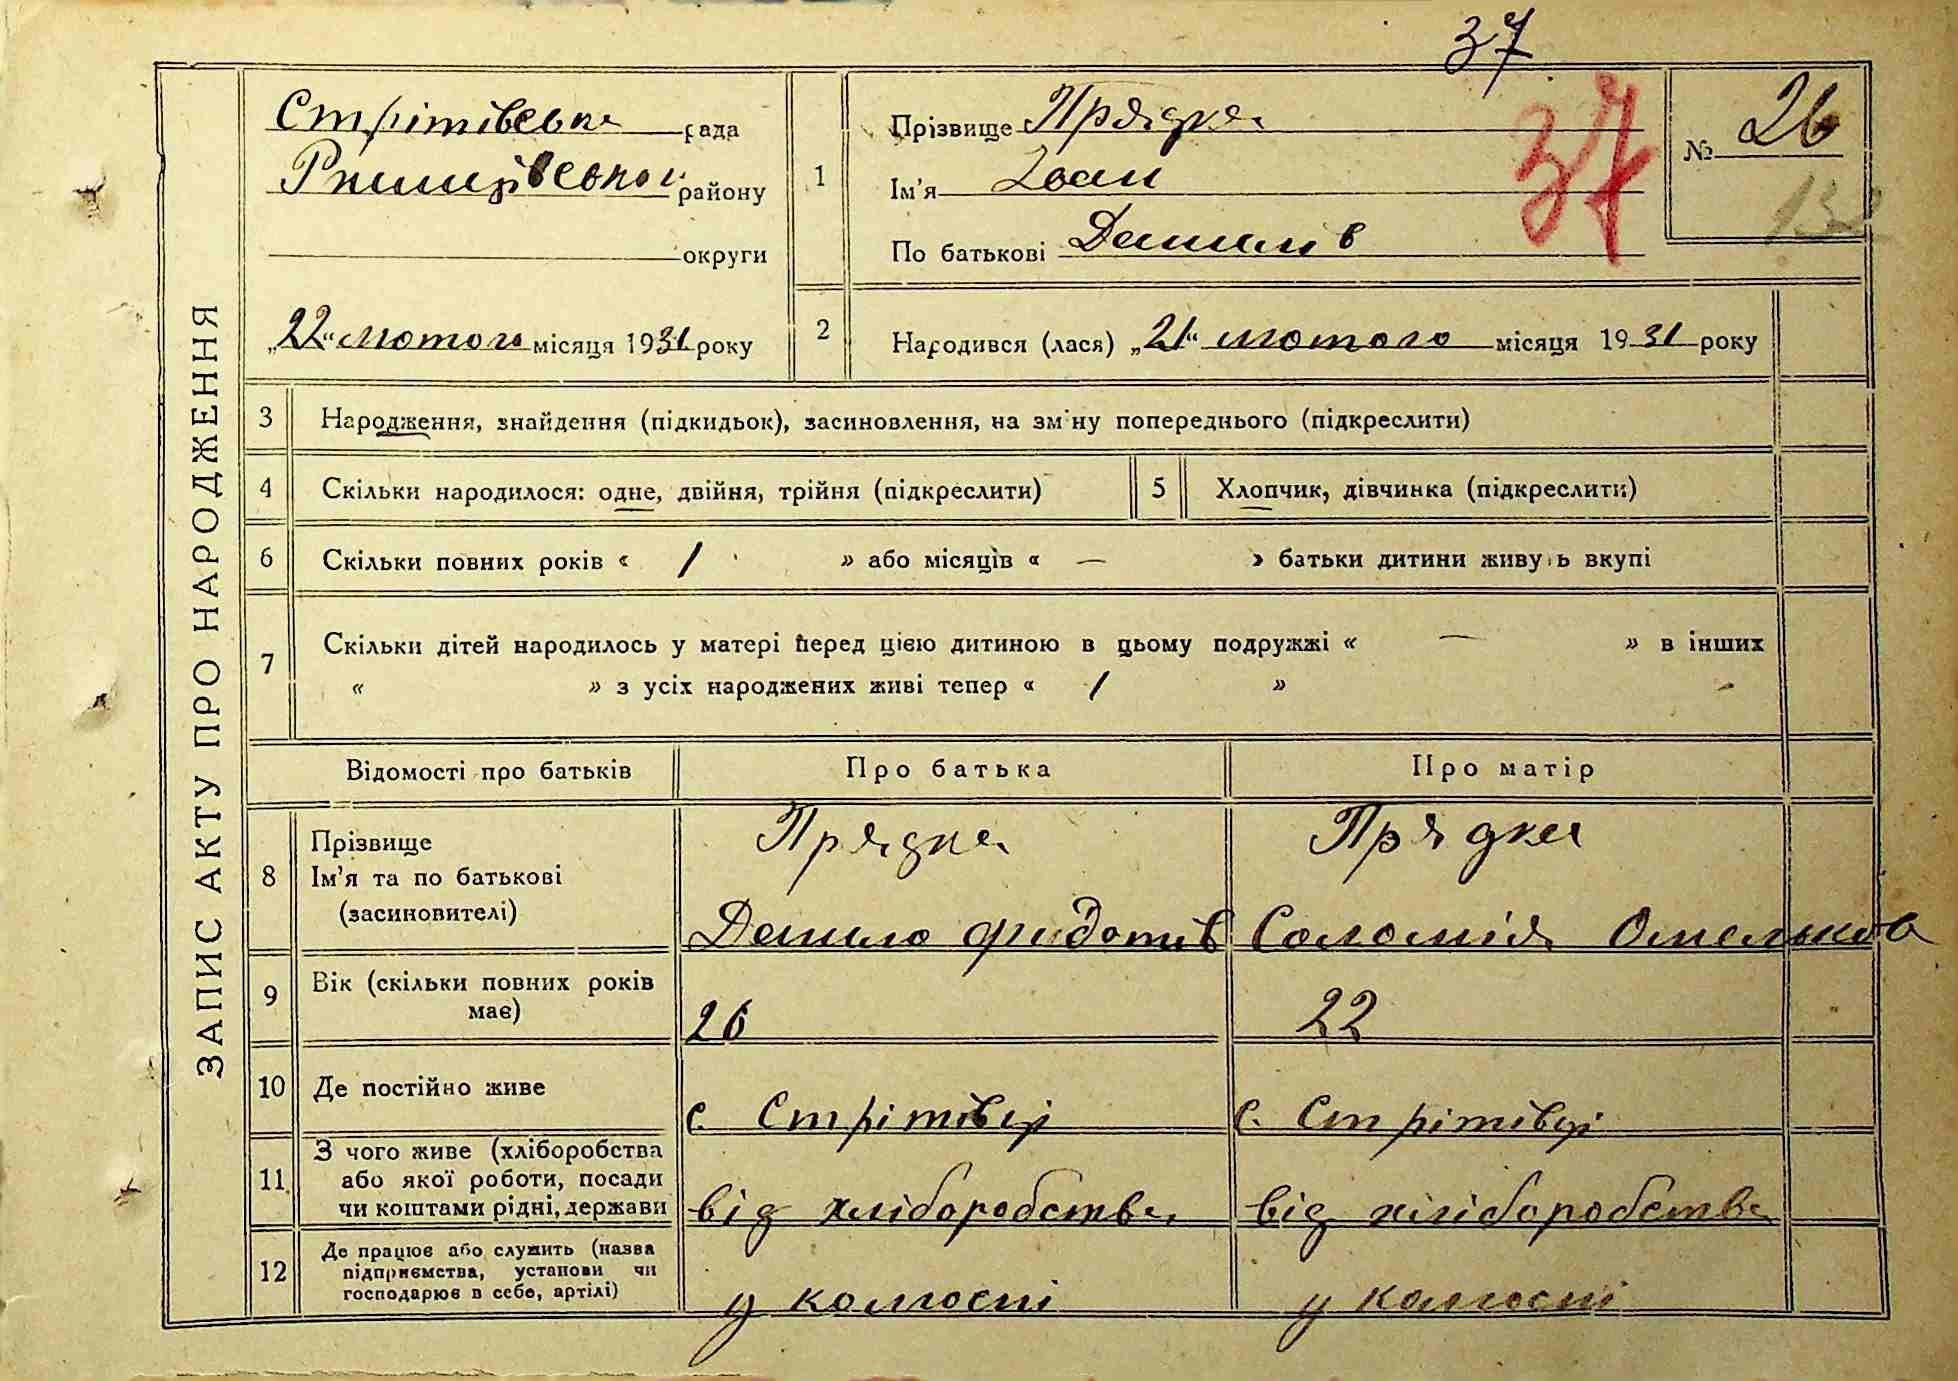 37
Стрітівська рада
Ржищівської району
округи
„22“ лютого місяця 1931 року
1
Прізвище Прядка
Ім'я Іван
По батькові Данилів
37
№ 26
132
2
Народився (лася) „21“ лютого місяця 1931 року
ЗАПИС АКТУ ПРО НАРОДЖЕННЯ
3 Народження, знайдення (підкидьок), засиновлення, на зміну попереднього (підкреслити)
4 Скільки народилося: одне, двійня, трійня (підкреслити) 5 Хлопчик, дівчинка (підкреслити)
6 Скільки повних років « 1 » або місяців « — » батьки дитини живуть вкупі
7 Скільки дітей народилось у матері перед цією дитиною в цьому подружжі « — » в інших
« » з усіх народжених живі тепер « 1 »
Відомості про батьків Про батька Про матір
8 Прізвище
Ім'я та по батькові
(засиновителі)
Прядка
Данило Федотів
Прядка
Соломія Омелькова
9 Вік (скільки повних років
має)
26
22
10 Де постійно живе
с. Стрітівці
с. Стрітівці
11 З чого живе (хліборобства
або якої роботи, посади
чи коштами рідні, держави
від хліборобства
від хліборобства
12 Де працює або служить (назва
підприємства, установи чи
господарює в себе, артілі)
у колгоспі
у колгоспі